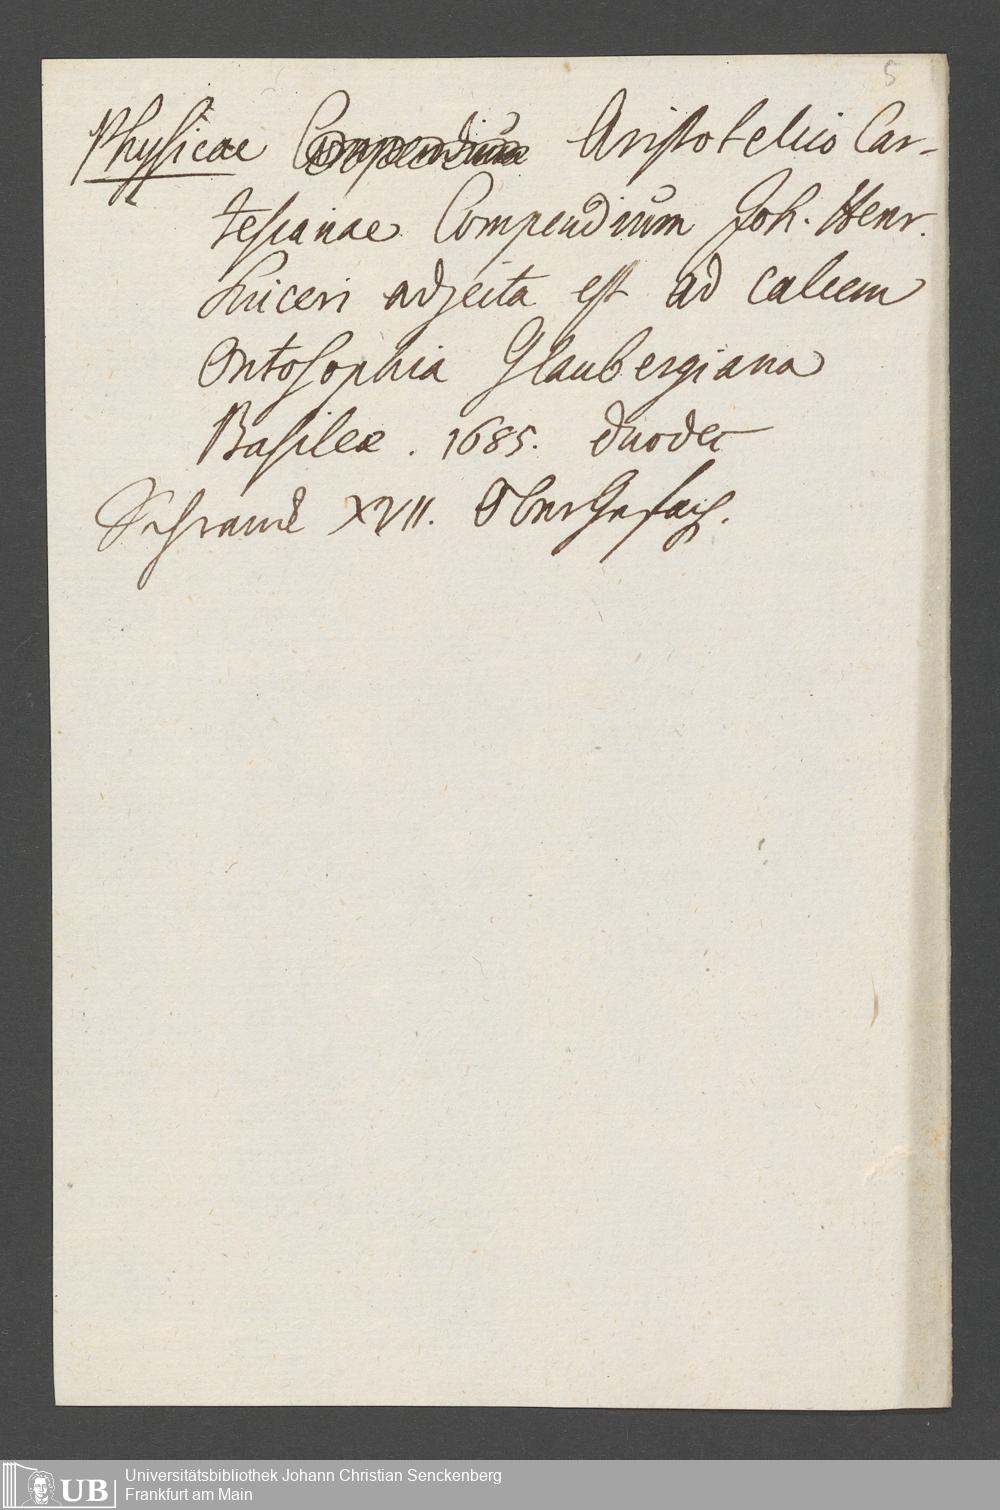 5
Physicae Compendium Aristotelico Car-
tesianae Compendium Joh. Henr.
Suiceri adjecta est ad calcem
Ontosophia Glaubergiana
Basileæ. 1685. duodec
XVII.
Universitätsbibliothek Johann Christian Senckenberg
Frankfurt am Main
UB